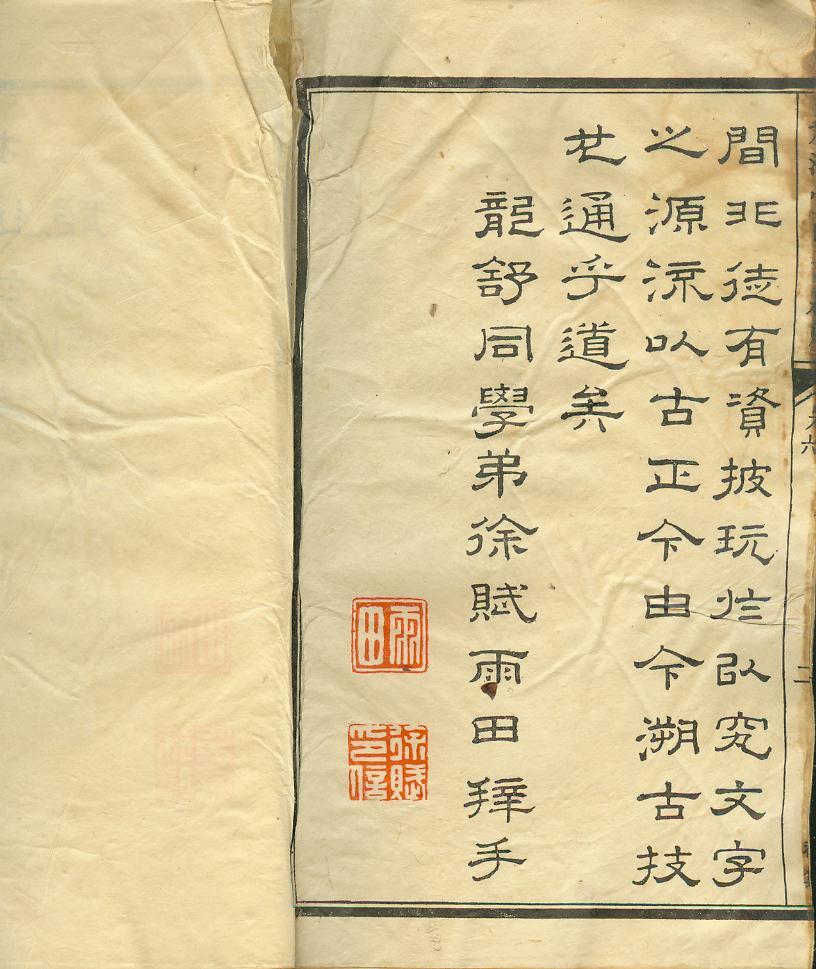 間非徒有資披玩以究文字
之源流以古正今由今溯古技
其通乎道矣
龍舒同學弟徐賦雨田拜手
雨田
徐賦印信
二